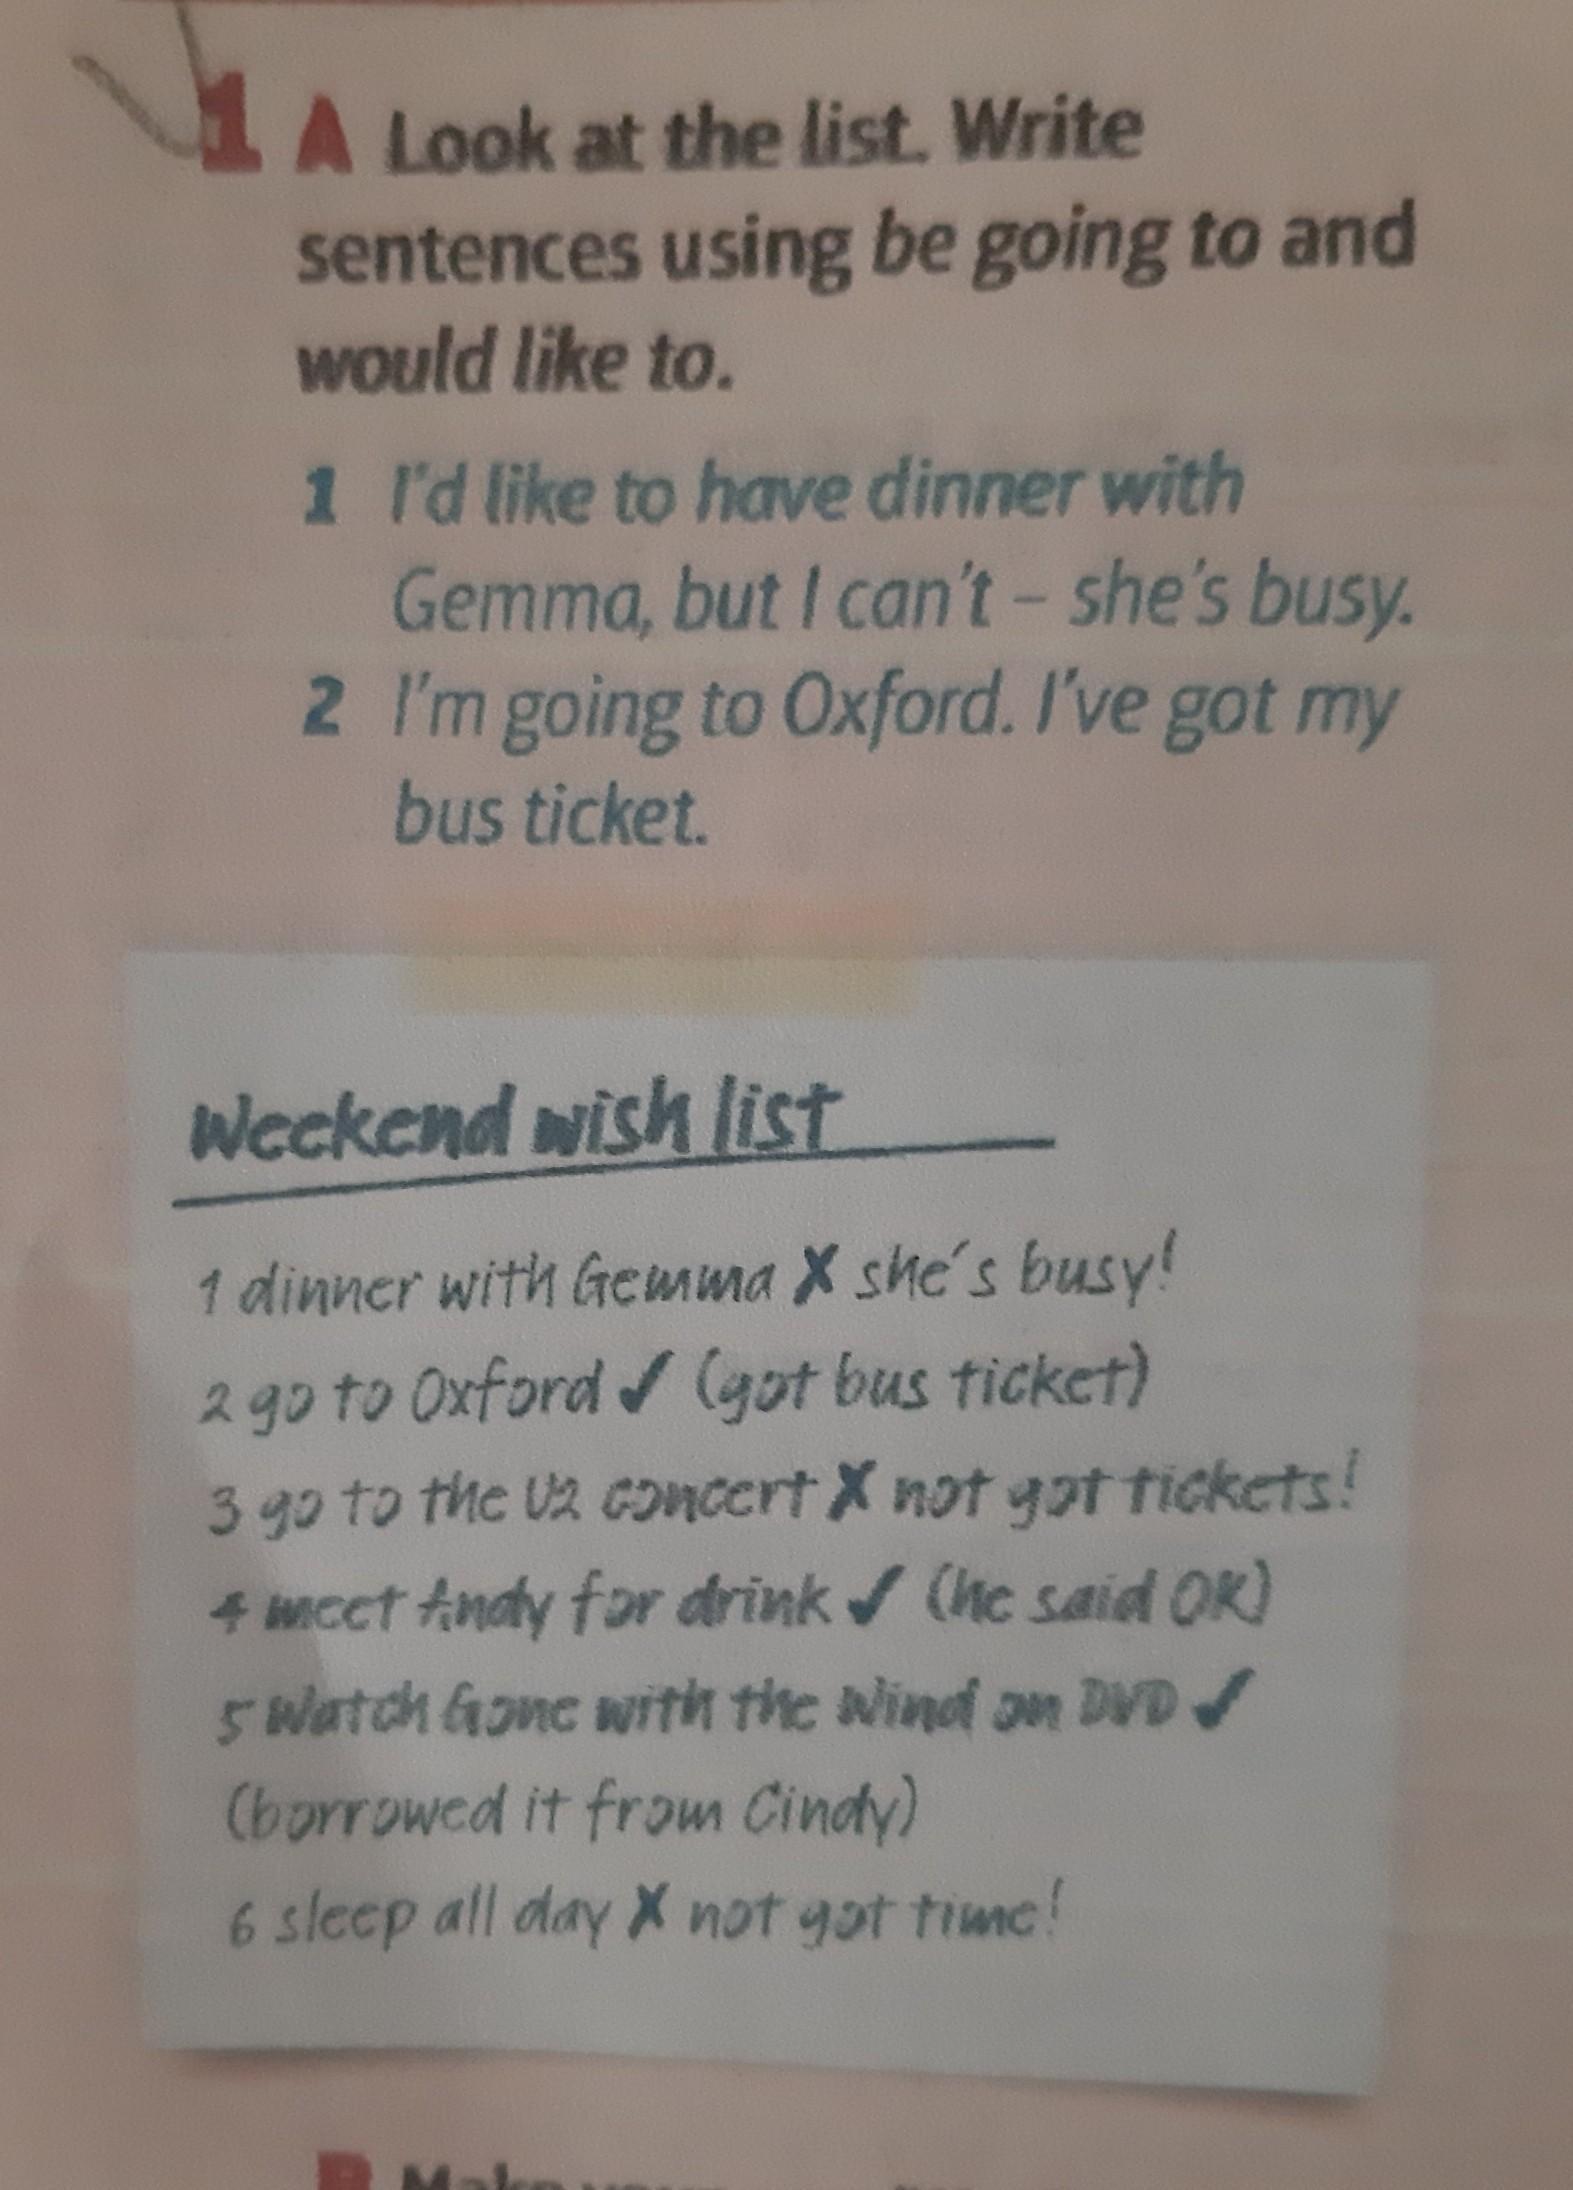 1 A Look at the list. Write
sentences using be going to and
would like to.
1 I'd like to have dinner with
Gemma, but I can't – she's busy.
2 I'm going to Oxford. I've got my
bus ticket.
Weekend wish list
1 dinner with Gemma ✗ she's busy!
2 go to Oxford ✓ (got bus ticket)
3 go to the U2 concert ✗ not got tickets!
4 meet Andy for drink ✓ (he said OK)
5 Watch Gone with the Wind on DVD ✓
(borrowed it from Cindy)
6 sleep all day ✗ not got time!
B Make